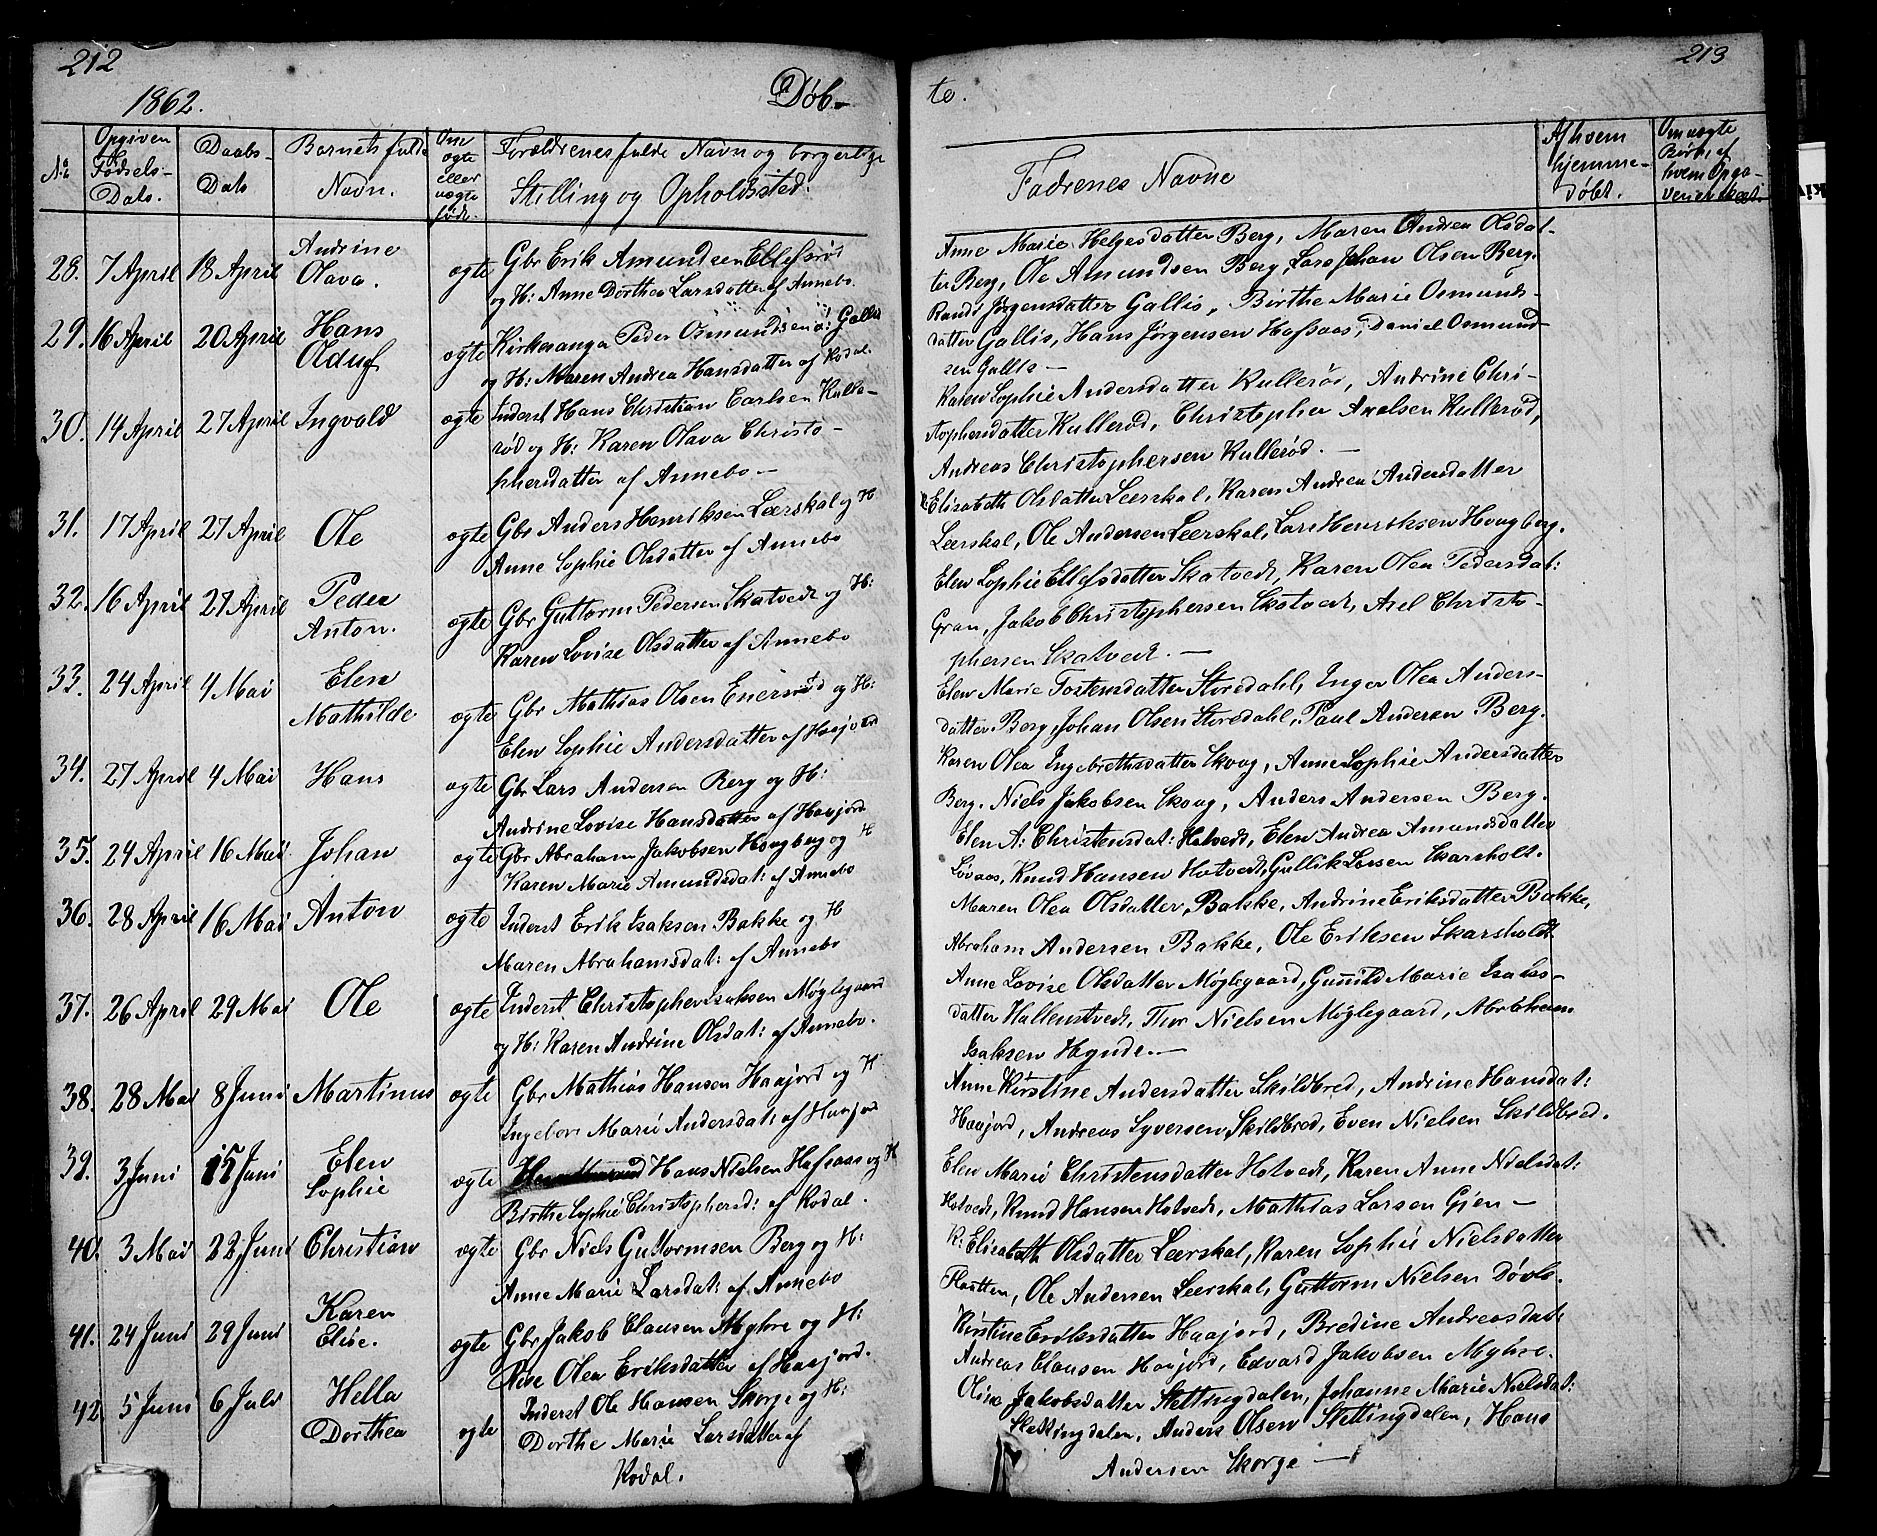 212
1862.
Døb-
No
Opgiven Fødsels- Dato.
Daabs- Dato
Barnets fulde Navn.
Om ægte eller uægte født.
Forældrenes fulde Navn og borgerlige Stilling og Opholdssted.
28. 7 April 18 April Andrine Olava. ægte Gbr Erik Amundsen Ellefsrød
og H: Anne Dorthea Larsdatter af Annebo.
29. 16 April 20 April Hans Oluf ægte Kirkesanger Peder Osmundsen Gallis
og H: Maren Andrea Hansdatter af Kodal.
30. 14 April 27 April Ingvald ægte Inderst Hans Christian Carlsen Kulle-
rød og H: Karen Olava Christo-
phersdatter af Annebo —
31. 17 April 27 April Ole ægte Gbr Anders Henriksen Leerskal og H
Anne Sophie Olsdatter af Annebo
32. 16 April 27 April Peder Anton. ægte Gbr Guttorm Pedersen Skatvedt og H:
Karen Lovise Olsdatter af Annebo
33. 24 April 4 Mai Elen Mathilde ægte Gbr Mathias Olsen Enersrød og H:
Elen Sophie Andersdatter af Haajord
34. 27 April 4 Mai Hans ægte Gbr Lars Andersen Berg og H:
Andrine Lovise Hansdatter af Haajord
35. 24 April 16 Mai Johan ægte Gbr Abraham Jakobsen Hougberg og H
Karen Marie Amundsdat: af Annebo
36. 28 April 16 Mai Anton ægte Inderst Erik Isaksen Bakke og H
Maren Abrahamsdat: af Annebo
37. 26 April 29 Mai Ole ægte Inderst Christopher Isaksen Møglegaard
og H: Karen Andrine Olsdat: af Annebo.
38. 28 Mai 8 Juni Martinus ægte Gbr Mathias Hansen Haajord og H
Ingebor Marie Andersdat: af Haajord
39. 3 Juni 15 Juni Elen Sophie ægte Hans Nielsen Hafsaas og H
Birthe Sophie Christophersd: af Kodal.
40. 3 Mai 22 Juni Christian ægte Gbr Niels Guttormsen Berg og H:
Anne Marie Larsdat: af Annebo
41. 24 Juni 29 Juni Karen Elise. ægte Gbr Jakob Clausen Myhre og H:
Olea Eriksdatter af Haajord.
42 5 Juni 6 Juli Hella Dorthea ægte Inderst Ole Hansen Skorge og H:
Dorthe Marie Larsdatter af
Kodal.
213
te.
Fadrenes Navne
Af hvem hjemme- døbt.
Om uægte Børn, af hvem Opga- ven er skeet.
Anne Marie Helgesdatter Berg, Maren Andrea Olsdat-
ter Berg, Ole Amundsen Berg, Lars Johan Olsen Berg.
Randi Jørgensdatter Gallis, Birthe Marie Osmunds-
datter Gallis, Hans Jørgensen Hafsaas, Daniel Osmund-
sen Gallis —
Karen Sophie Andersdatter Kullerød, Andrine Chri-
stophersdatter Kullerød, Christopher Axelsen Kullerød,
Andreas Christophersen Kullerød. —
Elisabeth Olsdatter Leerskal, Karen Andrea Andersdatter
Leerskal, Ole Andersen Leerskal, Lars Henriksen Hougberg.
Elen Sophie Ellefsdatter Skatvedt, Karen Olea Pedersdat:
Gran, Jakob Christophersen Skatvedt, Axel Christo-
phersen Skatvedt. —
Elen Marie Tostensdatter Storedahl, Inger Olea Anders-
datter Berg, Johan Olsen Storedahl, Paul Andersen Berg.
Karen Olea Ingebrethsdatter Skoug, Anne Sophie Andersdatter
Berg. Niels Jakobsen Skoug, Anders Andersen Berg.
Elen A: Christensdat: Hotvedt, Elen Andrea Amundsdatter
Løvaas, Knud Hansen Hotvedt, Gullik Larsen Skarsholt.
Maren Olea Olsdatter Bakke, Andrine Eriksdatter Bakke,
Abraham Andersen Bakke, Ole Eriksen Skarsholdt
Anne Lovise Olsdatter Møglegaard, Gunild Marie Isaks-
datter Hallenstvedt, Thor Nielsen Møglegaard, Abraham
Isaksen Hynde. —
Anne Kirstine Andersdatter Skildbred, Andrine Hansdat:
Haajord, Andreas Syversen Skildbred, Even Nielsen Skildbred.
Elen Marie Christensdatter Hotvedt, Karen Anne Nielsdat:
Hotvedt, Knud Hansen Hotvedt, Mathias Larsen Gjen —
K: Elisabeth Olsdatter Leerskal, Karen Sophie Nielsdatter
Flaatten, Ole Andersen Leerskal, Guttorm Nielsen Døvle.
Kirstine Eriksdatter Haajord, Bredine Andreasdat:
Andreas Clausen Haajord, Edvard Jakobsen Myhre.
Oline Jakobsdatter Slettingdalen, Johanne Marie Nielsdat:
Slettingdalen, Anders Olsen Slettingdalen, Hans
Andersen Skorge —